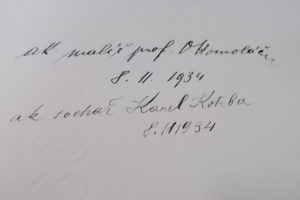 ak malíř prof
8. II. 1934
ak sochař Karel Kotrba
8.II1934